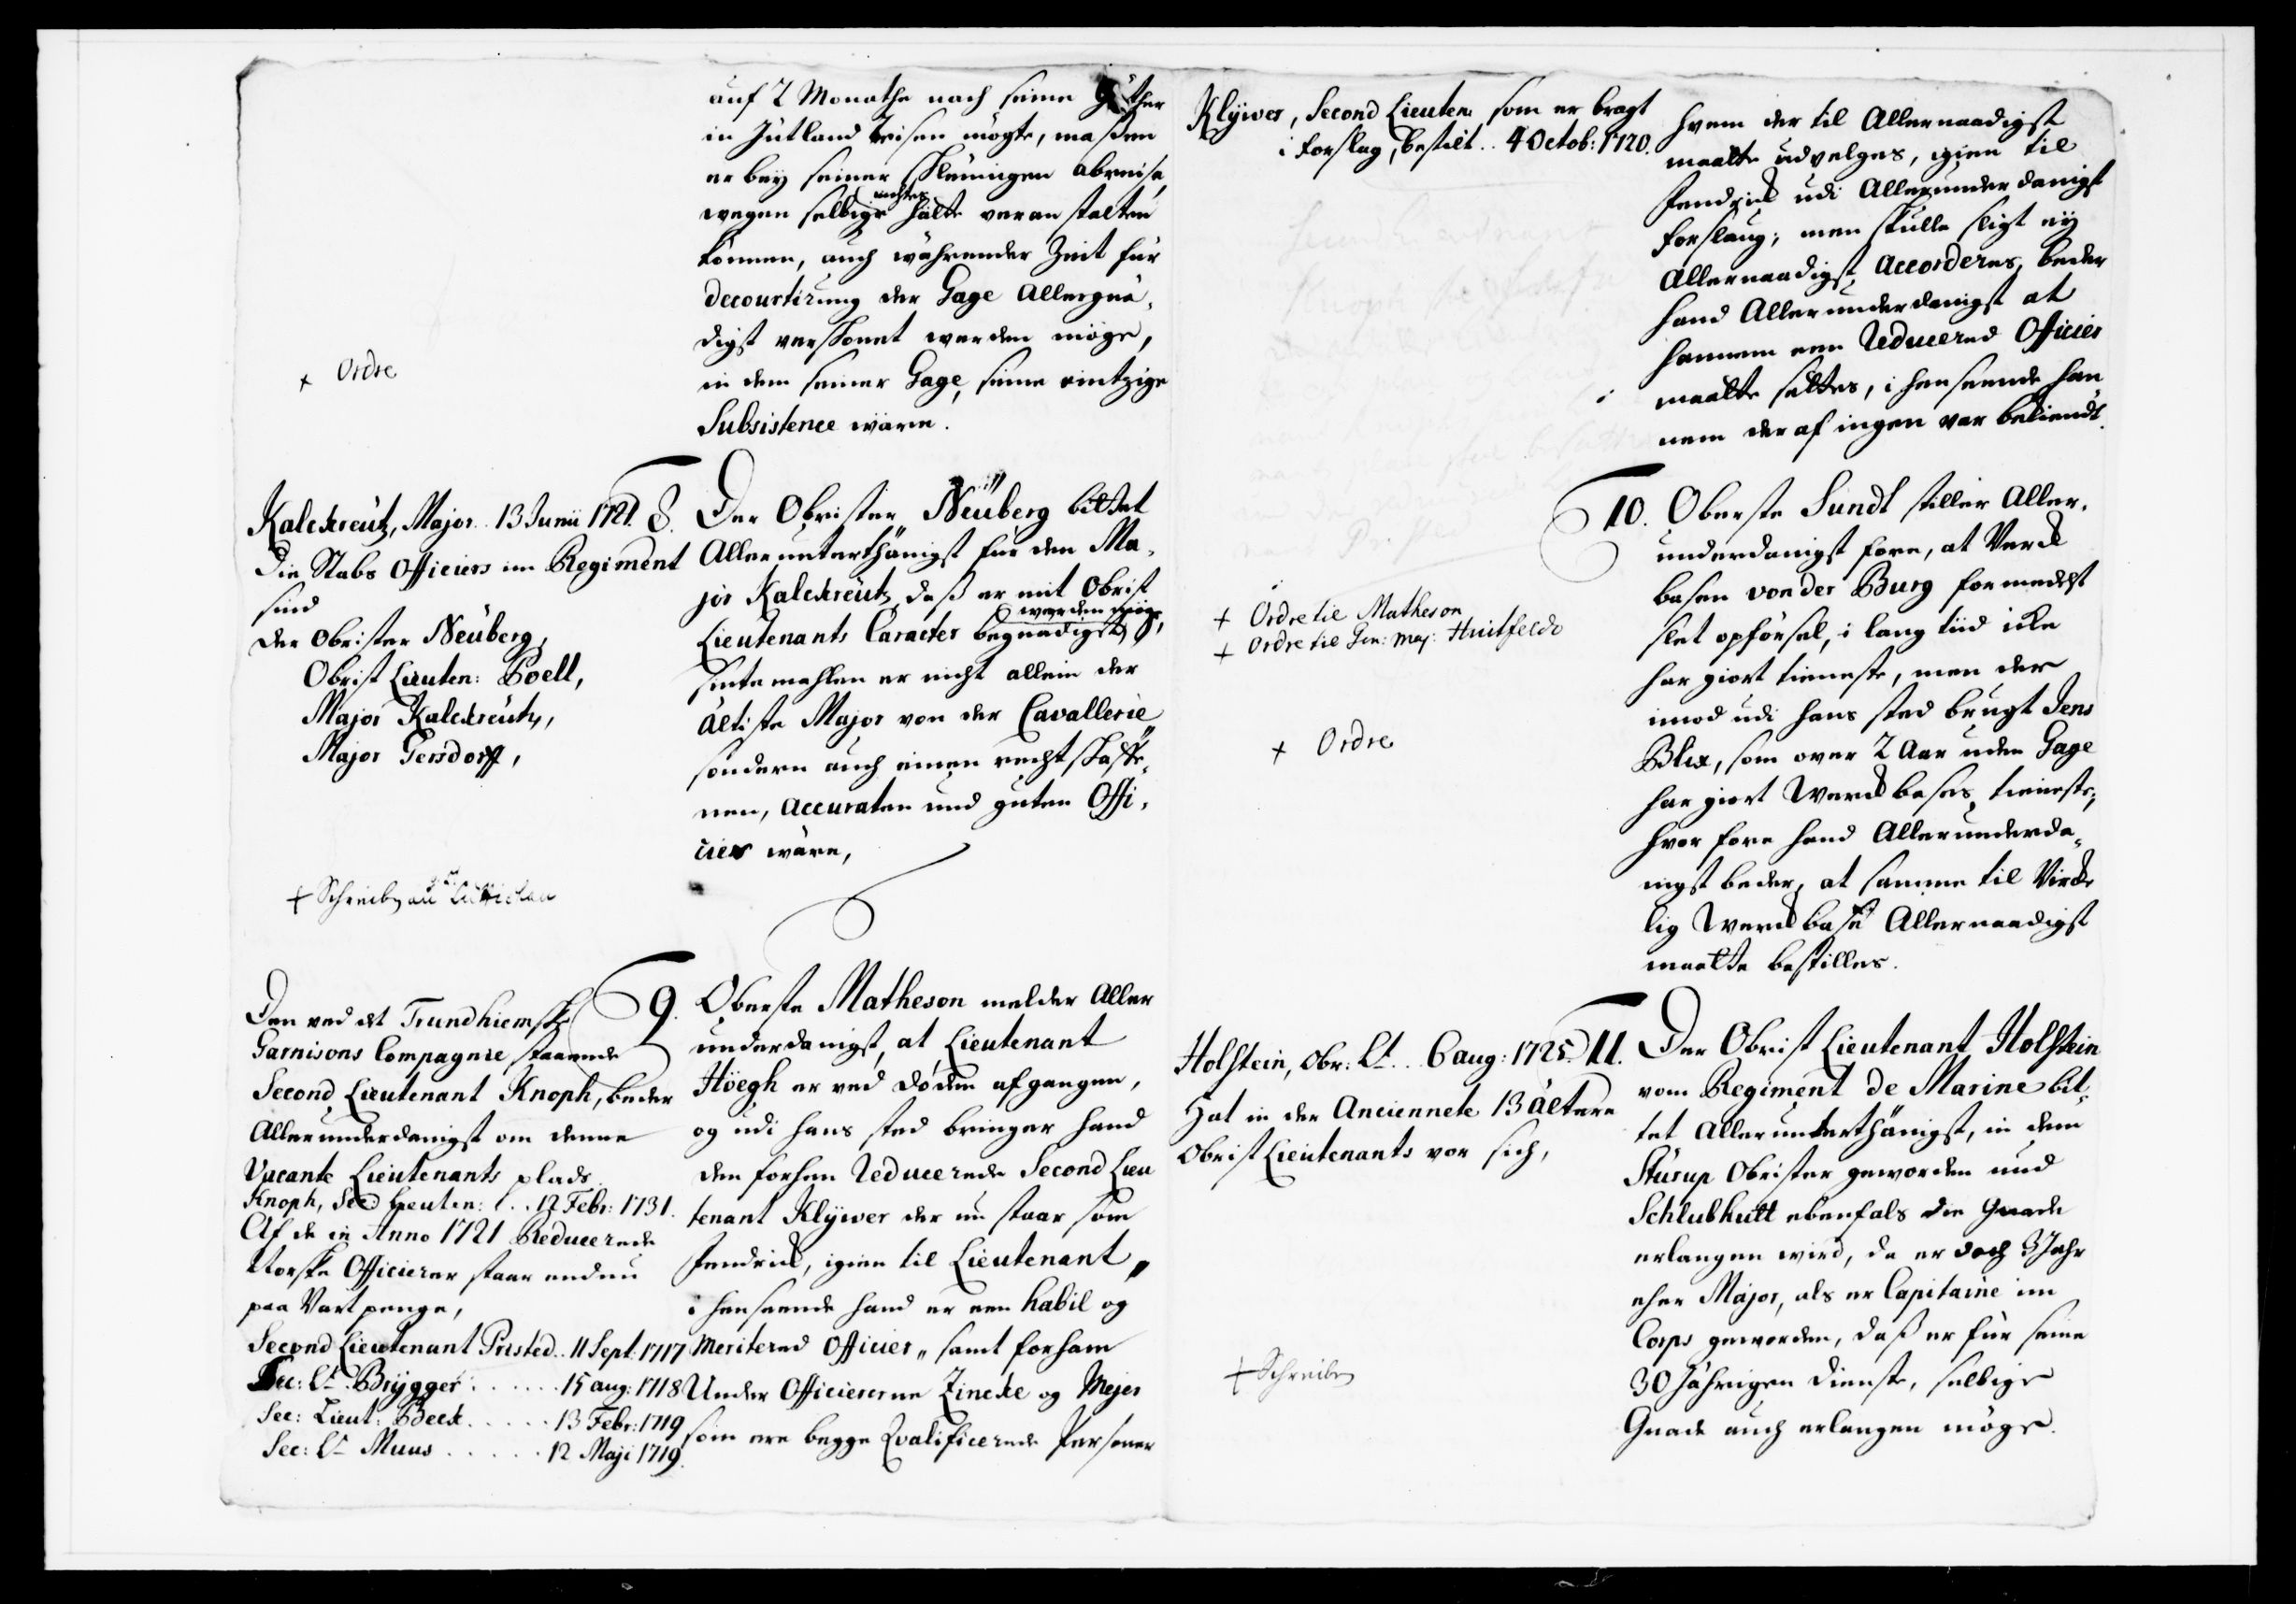 auf 2 Monathe nach seine Güther
in Jütland reisen mögte, maßen
er bey seiner schleünigen abreise,
wegen selbige nichtes hätte veranstalten
können, auch währender Zeit für
decourtirung der Gage Allergnä-
digst verschonet werden möge,
in dem seiner Gage, seine eintzige
Subsistence wäre.
+ Ordre
Kalckreütz, Major. 13 Junii 1721.
Die Stabs Officiers im Regiment
sind
der Obrister Neüberg,
Obrist Lieuten: Poell,
Major Kalckreütz,
Major Gersdorff,
+ Schreiben an
8. Der Obrister Neüberg bittet
Allerunterthänigst für den Ma-
jor Kalckreütz, daß er mit Obrist
Lieutenants Caracter begnadiget werden möge,
sintemahlen er nicht allein der
ältiste Major von der Cavallerie
sondern auch einen rechtschaffe-
nen, accuraten und guten Offi-
cier wäre,
Den ved det Trundhiemske
Garnisons Compagnie staaende
Second Lieutenant Knoph, beder
Allerunderdanigst om denne
Vacante Lieutenants plads.
Knoph, Sec: Lieuten: .. 12 Febr: 1731.
Af de in Anno 1721 Reducerede
Norske Officierer staar endnu
paa Vartpenge,
Second Lieutenant Pristed.. 11 Sept: 1717
Sec: Lt. Brÿgger ...... 15 aug: 1718
Sec: Lieut: Beck ..... 13 Febr: 1719
Sec: Lt Muus ..... 12 Maji 1719.
9. Oberste Matheson melder Aller
underdanigst, at Lieutenant
Höegh er ved döden afgangen,
og udi hans sted bringer hand
den forhen Reducerede Second Lieu
tenant Klÿwer der nu staar som
Fendrick, igien til Lieutenant,,
i henseende hand er een habil og
Meritered Officier,, samt forham
Under Officiererne Zincke og Mejer
som ere begge Qvalificerede Personer
Klÿwer, Second Lieuten: som er bragt
i forslag, bestilt.. 4 Octob: 1720.
hvem der til Allernaadigst
maatte udvelges, igien til
Fendrick udi Allerunderdanigst
forslaug; men skulle sligt eÿ
Allernaadigst Accorderes, beder
hand Allerunderdanigst at
hannem een Reducered Officier
maatte sættes, i henseende han
nem der af ingen var bekiendt.
+ Ordre til Matheson
+ Ordre til Gen: Maj: Huitfeldt
+ Ordre
10. Oberste Sundt stiller Aller-
underdanigst fore, at Verck
basen von der Burg formedelst
slet opförsel, i lang tiid icke
har giort tieneste, men der
imod udi hans sted brugt Jens
Blix, som over 2 Aar uden Gage
har giort Werckbases tieneste;
hvor fore hand Allerunderda-
nigst beder, at samme til Virke
lig Werckbase Allernaadigst
maatte bestilles.
Holstein, Obr: Lt... 6 aug: 1725.
Hat in der Anciennete 13 ältere
Obrist Lieutenants vor sich,
+ Schreiben
11. Der Obrist Lieutenant Holstein
vom Regiment de Marine bit-
tet Allerunterthänigst, in dem
Stürup Obrister geworden und
Schlubhutt ebenfals die Gnade
erlangen wird, da er doch 3 Jahr
eher Major, als er Capitaine im
Corps geworden, daß er für seine
30 Jährigen Dienste, selbige
Gnade auch erlangen möge.